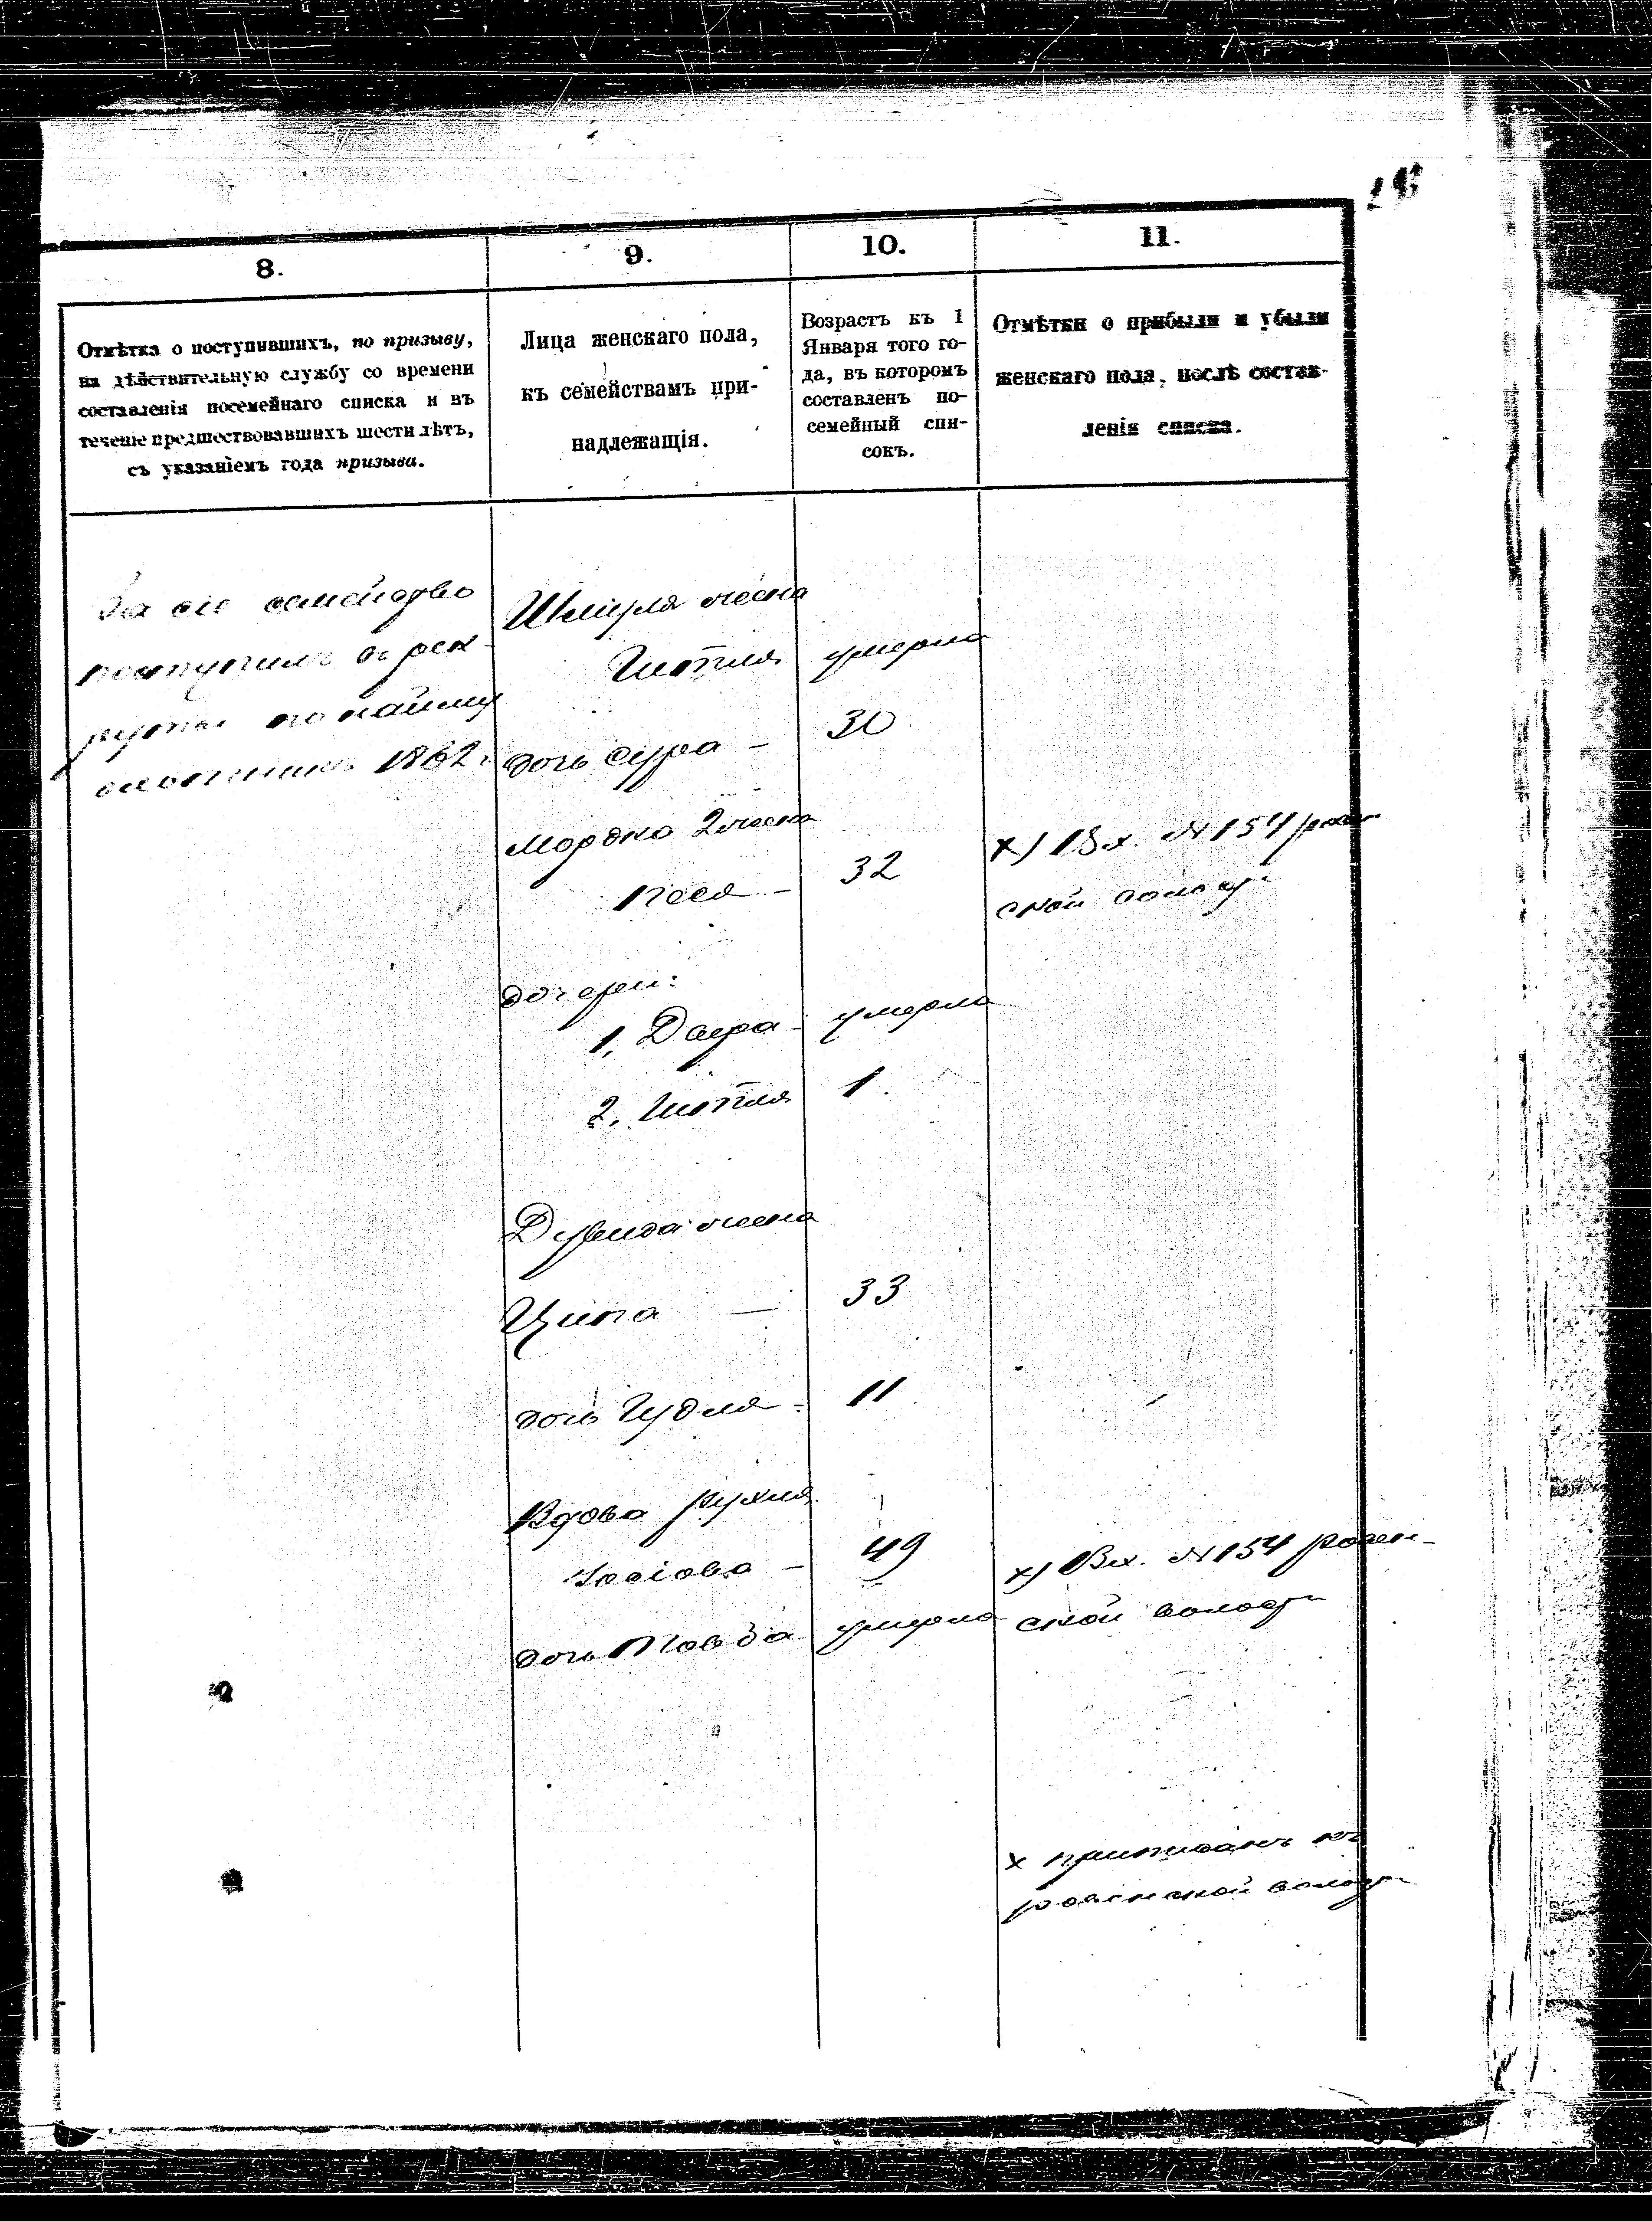 8.
9.
10.
11.
Отмѣтка о поступившихъ, по призыву,
на дѣйствительную службу со времени
составленія посемейнаго списка и въ
теченіе предшествовавшихъ шести лѣтъ,
съ указаніемъ года призыва.
Лица женскаго пола,
къ семействамъ при-
надлежащія.
Возрастъ къ 1
Января того го-
да, въ которомъ
составленъ по-
семейный спи-
сокъ.
Отмѣтки о прибыли и убыли
женскаго пола, послѣ состав-
ленія списка.
За сіе семейство
поступилъ въ рек-
руты по найму
охотникъ 1862 г
Шмуля жена
Гитля умерла
дочь Сура – 30
Мордко 2 жена
Песя – 32
х) Вх. № 154
ской волости
дочери:
1, Двера умерла
2, Гитля 1.
Дувида жена
Ципа — 33
дочь Гудля – 11
Вдова Рухля
Іосіова – 49
х) Вх. № 154 ровен-
дочь Товба умерла
ской волости
х приписанъ къ
ровенской волости